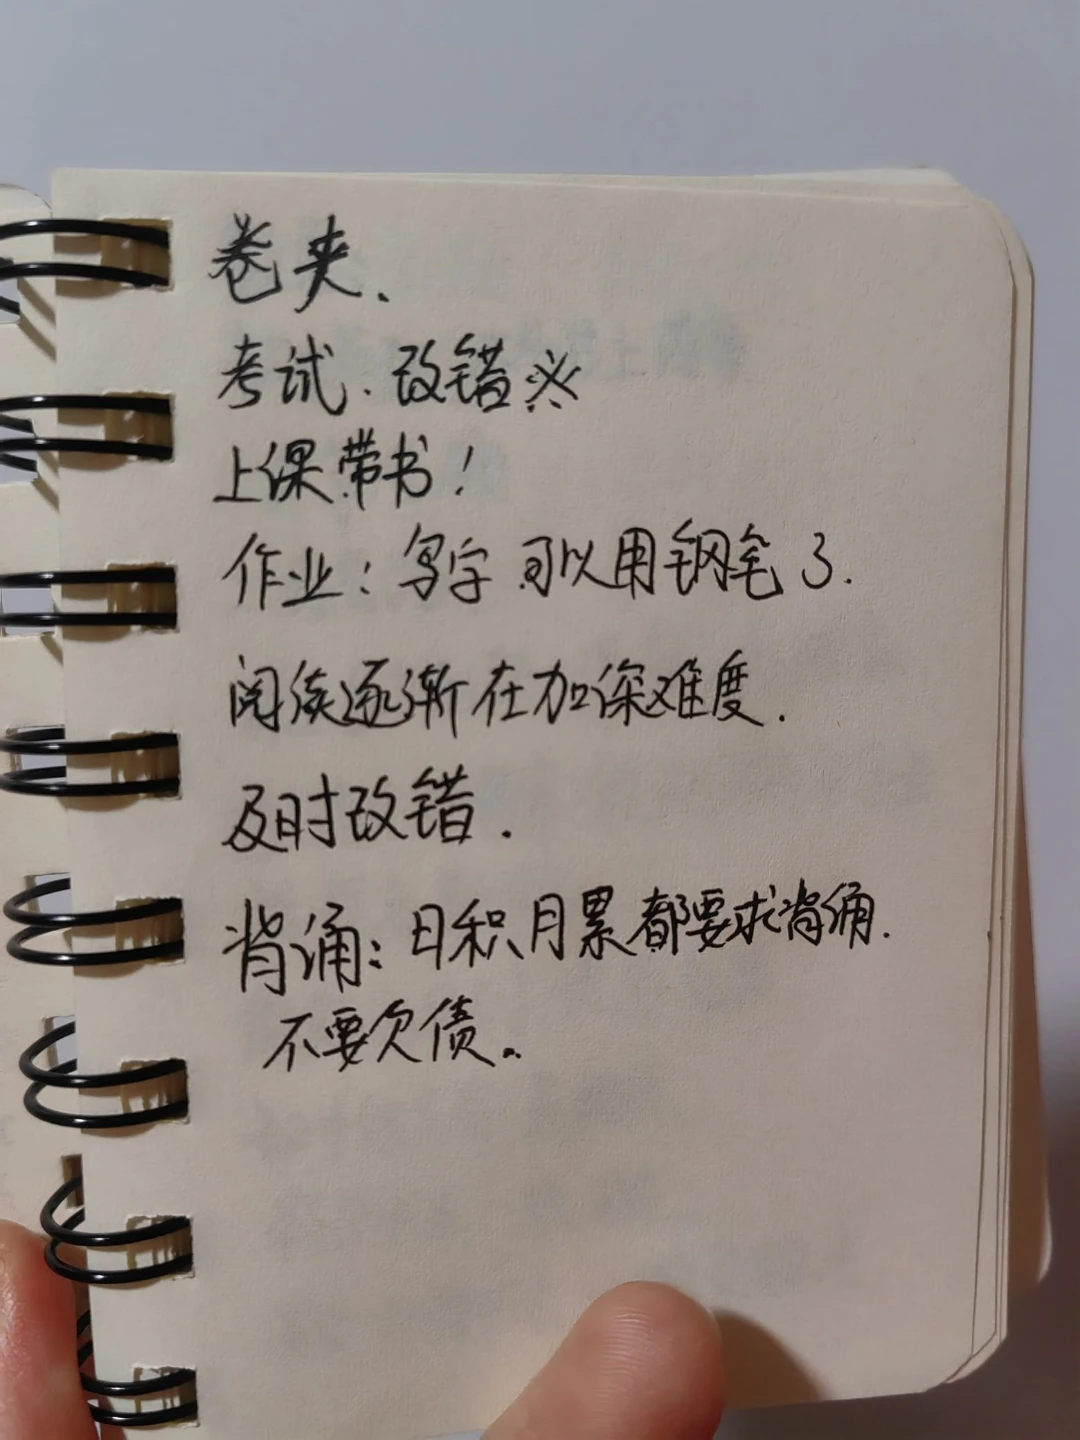 卷夹、
考试、改错※
上课带书！
作业：写字 可以用钢笔了.
阅读逐渐在加深难度.
及时改错.
背诵：日积月累都要求背诵.
不要欠债。